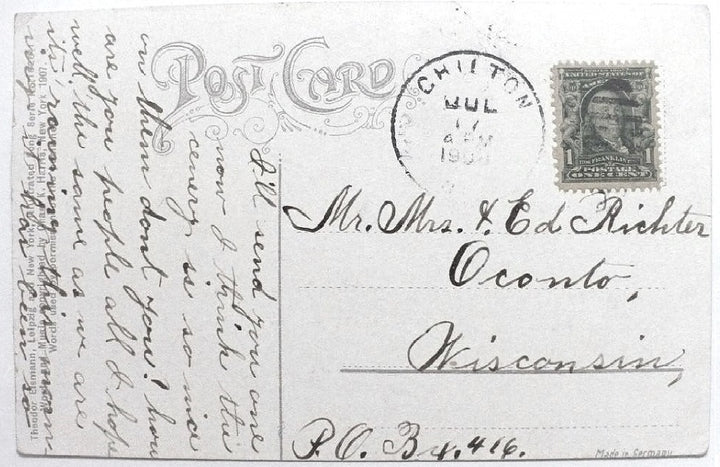 POST CARD
CHILTON
JUL
17
4 PM
UNITED STATES OF AMERICA
1 FRANKLIN 1
POSTAGE
ONE CENT
Mr. Mrs. & Ed Richter
Oconto,
Wisconsin,
P.O. Bx. 416.
Made in Germany
I'll send you one
now I think the
cenery is so nice
on them dont you? how
are you people all I hope
well the same as we are
it's raining this morn-
ing
Theodor Eismann, Leipzig and New York, Illustrated Song Serie
New York, 1907